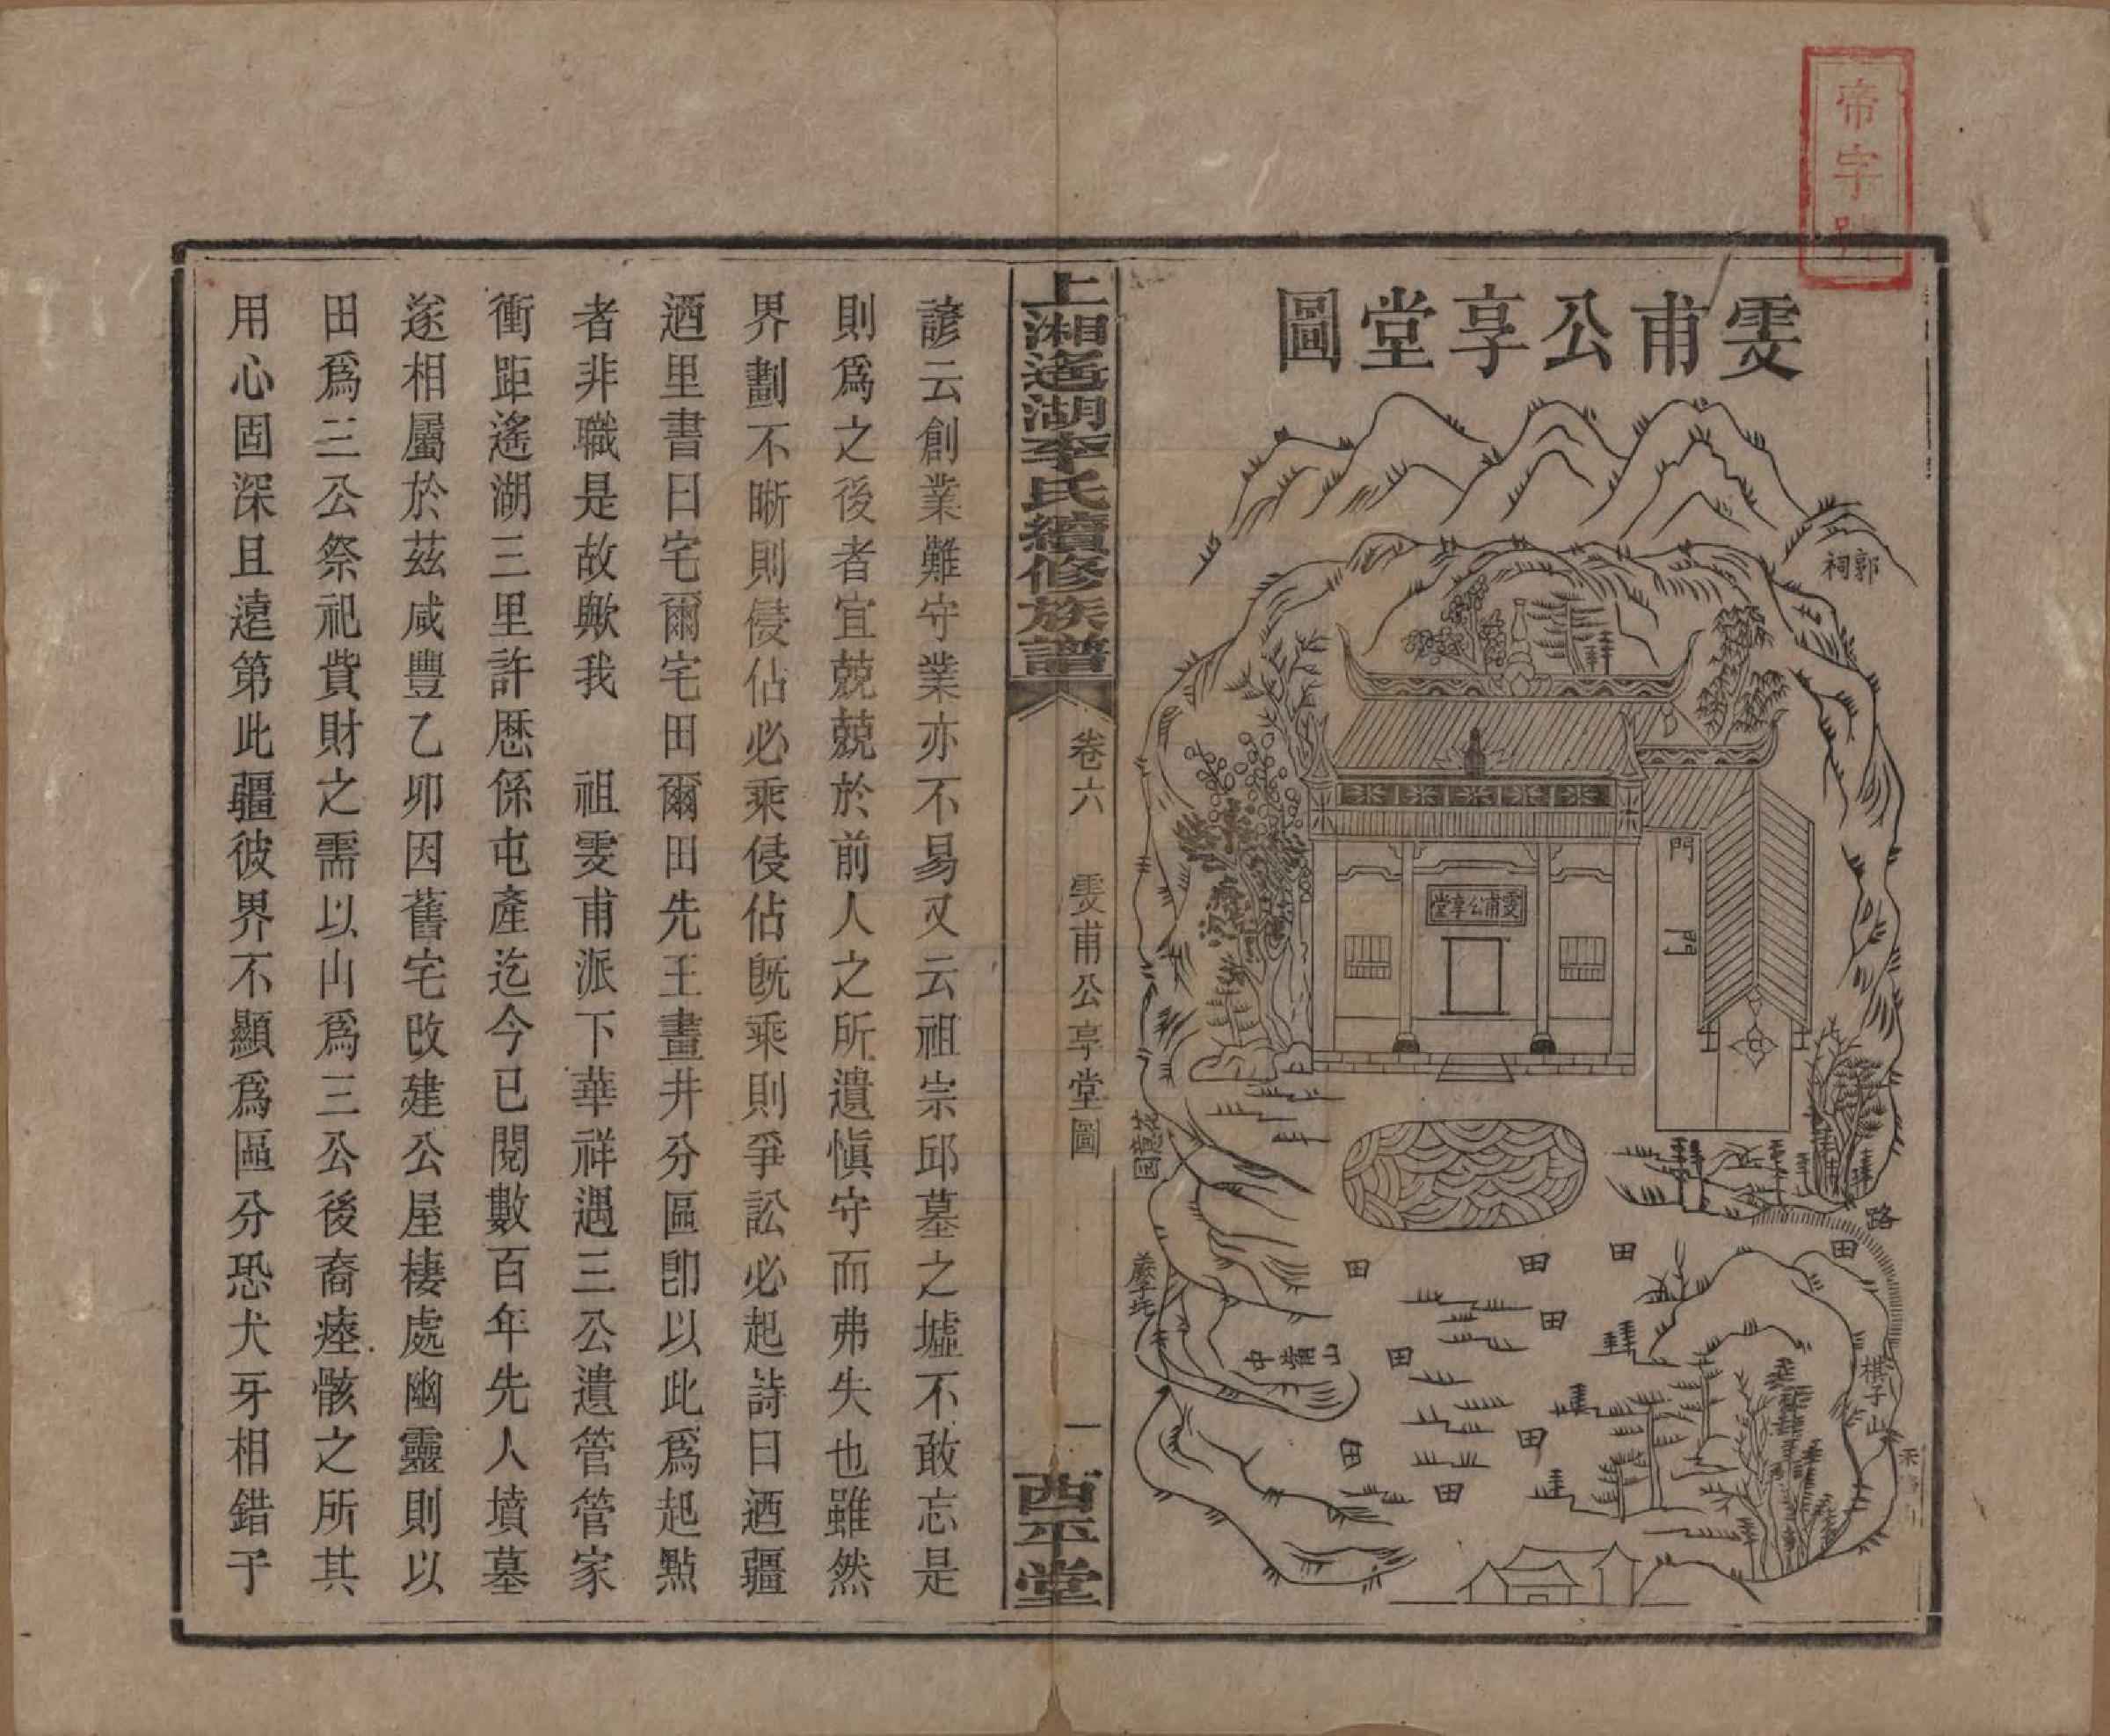 帝字號
雯甫公享堂圖
郭祠
雯甫公享堂
門
門
路
田
田
田
田
田
田
田
田
田
中嘴山
棋子山
上湘遙湖李氏續修族譜
卷六
雯甫公享堂圖
一
西平堂
諺云創業難守業亦不易又云祖宗邱墓之墟不敢忘是
則爲之後者宜兢兢於前人之所遺愼守而弗失也雖然
界劃不晰則侵佔必乘侵佔旣乘則爭訟必起詩曰迺疆
迺里書曰宅爾宅田爾田先王畫井分區卽以此爲起點
者非職是故歟我　祖雯甫派下華祥遇三公遺管管家
衝距遙湖三里許歷係屯產迄今已閱數百年先人墳墓
遂相屬於茲咸豐乙卯因舊宅改建公屋棲處幽靈則以
田爲三公祭祀貲財之需以山爲三公後裔瘞骸之所其
用心固深且遠第此疆彼界不顯爲區分恐犬牙相錯于